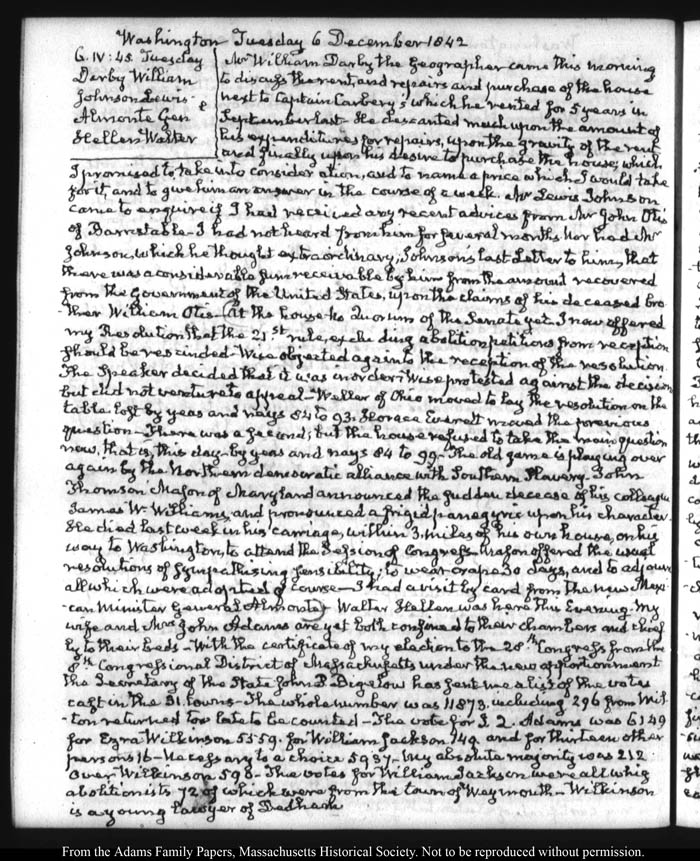 Washington Tuesday 6 December 1842
6. IV:45. Tuesday
Darby William
Johnson Lewis
Almonte Gen &
Hellen Walter
Mr William Darby the Geographer came this morning
to discuss the rent, and repairs and purchase of the house
next to Captain Carbery's which he rented for 5 years in
September last. He descanted much upon the amount of
his expenditures for repairs, upon the gravity of the rent
and finally upon his desire to purchase the house, which
I promised to take into consideration, and to name a price which I would take
for it, and to give him an answer in the course of a week. Mr Lewis Johnson
came to enquire if I had received any recent advices from Mr John Otis
of Barnstable - I had not heard from him for several months nor had Mr
Johnson, which he thought extraordinary, Johnson's last Letter to him, that
there was a considerable sum receivable by him from the amount recovered
from the Government of the United States, upon the claims of his deceased bro
-ther William Otis - At the house - No Quorum of the Senate yet. I now offered
my Resolution that the 21st rule, excluding abolition petitions from reception
should be rescinded - Wise objected against the reception of the resolution.
The Speaker decided that it was in order. Wise protested against the decision
but did not venture to appeal - Weller of Ohio moved to lay the resolution on the
table lost by yeas and nays 84 to 93. Horace Everett moved the previous
question - There was a second; but the house refused to take the main question
now, that is, this day - by yeas and nays 84 to 99 - The old game is playing over
again by the Northern democratic alliance with Southern Slavery - John
Thomson Mason of Maryland announced the sudden decease of his colleague
James W. Williams, and pronounced a frigid panegyric upon his character.
He died last week in his carriage, within 3 miles of his own house, on his
way to Washington, to attend the Session of Congress. Mason offered the usual
resolutions of sympathising sensibility, to wear crape 30 days, and to adjourn
all which were adopted of course - I had a visit by card from the new Mexi
-can Minister General Almonte, Walter Hellen was here this Evening. My
wife and Mrs John Adams are yet both confined to their chambers and chief
ly to their beds - With the certificate of my election to the 28th Congress from the
8th Congressional District of Massachusetts under the new apportionment
the Secretary of the State John P. Bigelow has sent me a list of the votes
cast in the 21 towns - The whole number was 11873, including 296 from Mil
-ton returned too late to be counted - The vote for J. Q. Adams was 6149
for Ezra Wilkinson 5559. for William Jackson 149 and for thirteen other
persons 16 - Necessary to a choice 5937 - My absolute majority was 212
over Wilkinson 598 - The votes for William Jackson were all whig
abolitionists 72 of which were from the town of Weymouth - Wilkinson
is a young lawyer of Dedham
From the Adams Family Papers, Massachusetts Historical Society. Not to be reproduced without permission.